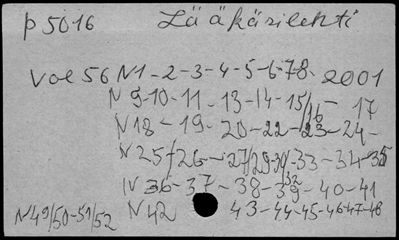 p 5016 Lääkärilehti
Vol 56 N1-2-3-4-5-6-7-8- 2001
N 9-10-11-13-14-15/16-17
N18-19-20-22-23-24-
N 25/26-27/29-30/-33-34-35
N 36-37-38-39-40-41
N 42 43-44-45-46-47-48
N49/50-51/52